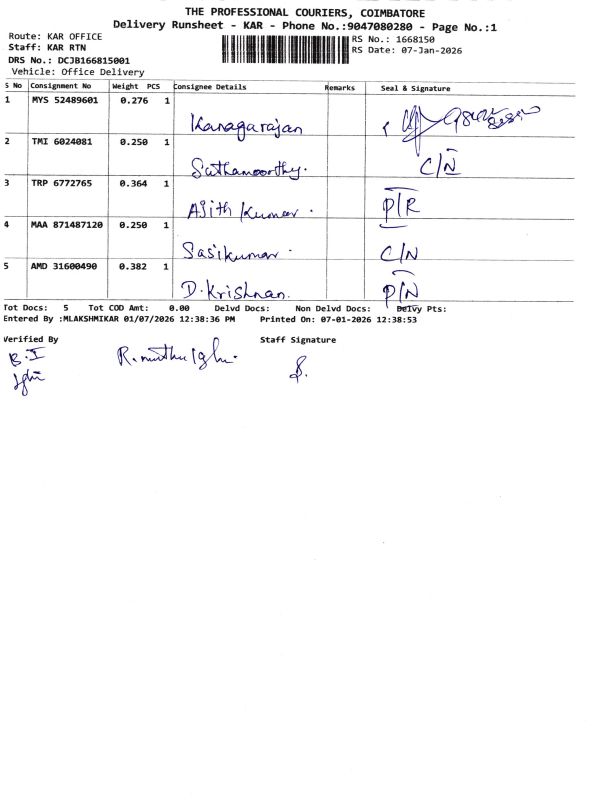 THE PROFESSIONAL COURIERS, COIMBATORE
Delivery Runsheet - KAR - Phone No.:9047080280 - Page No.:1
Route: KAR OFFICE
Staff: KAR RTN
DRS No.: DCJB166815001
Vehicle: Office Delivery
RS No.: 1668150
RS Date: 07-Jan-2026
S No Consignment No Weight PCS Consignee Details Remarks Seal & Signature
1 MYS 52489601 0.276 1
Kanagarajan
2 TMI 6024081 0.250 1
Sathamoorthy. C/N
3 TRP 6772765 0.364 1
Ajith Kumar. P/R
4 MAA 871487120 0.250 1
Sasikumar. C/N
5 AMD 31600490 0.382 1
D.Krishnan. P/N
Tot Docs: 5 Tot COD Amt: 0.00 Delvd Docs: Non Delvd Docs: Delvy Pts:
Entered By :MLAKSHMIKAR 01/07/2026 12:38:36 PM Printed On: 07-01-2026 12:38:53
Verified By Staff Signature